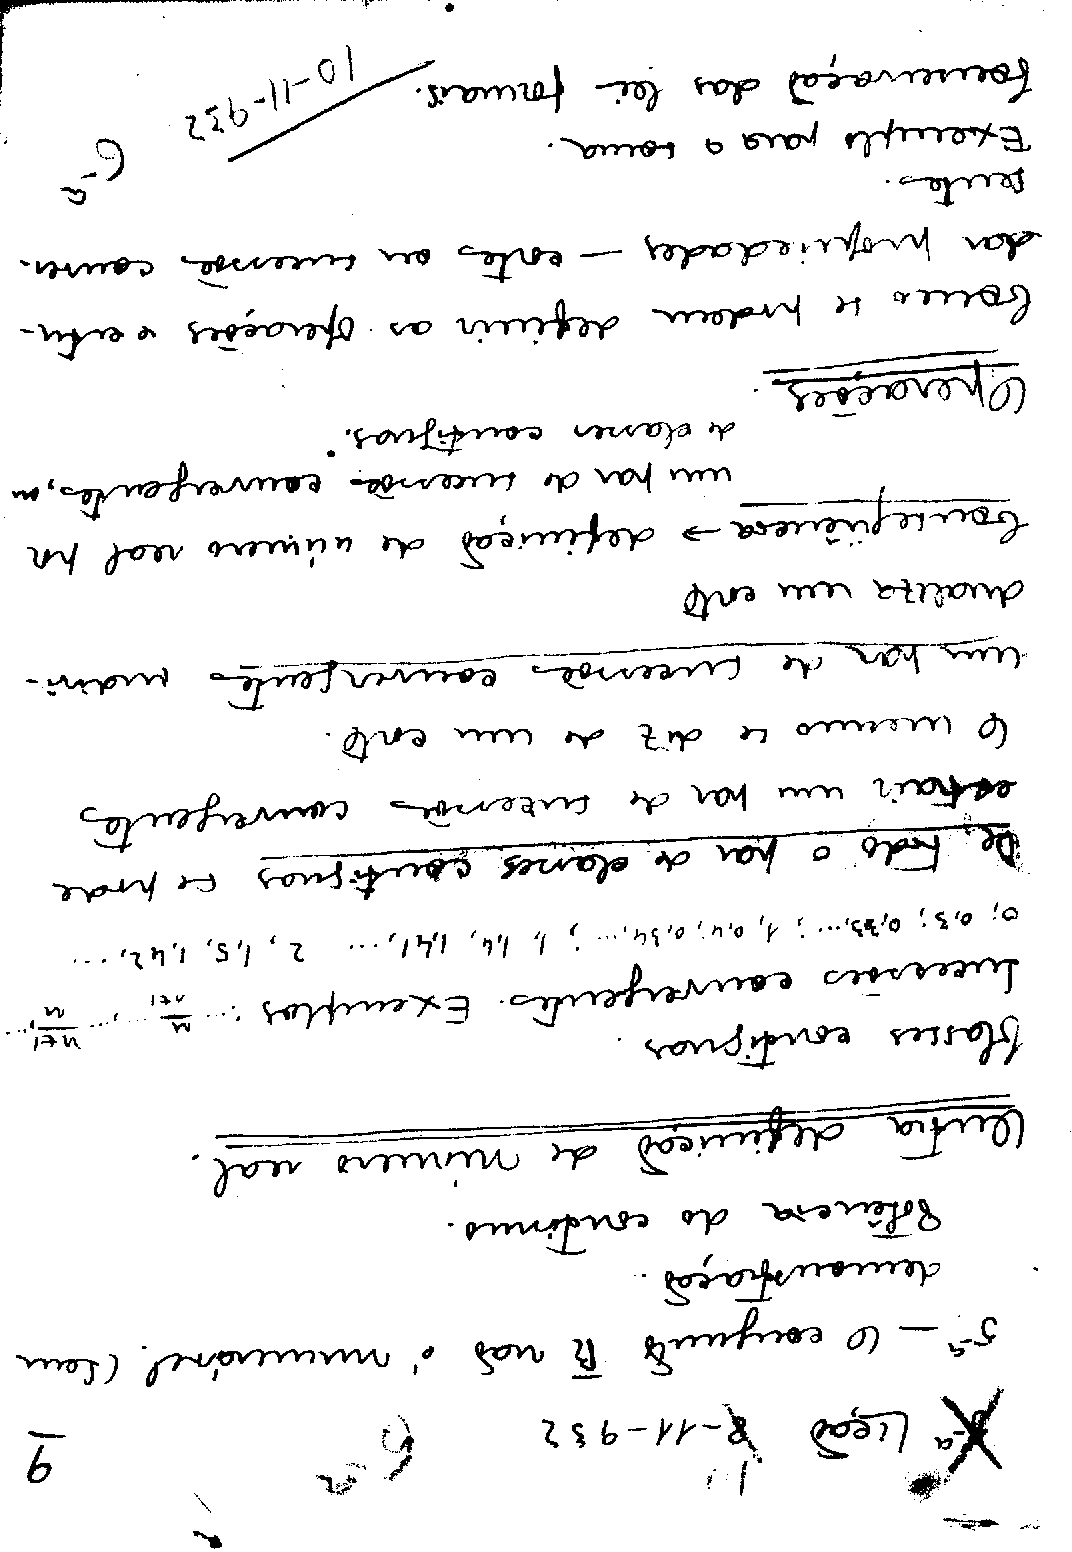 9
X-ª Lição 8-11-932 6-ª
5-ª — O conjunto R não é numerável. (Sem
demonstração.
Potência do contínuo.
Outra definição de número real.
Classes contíguas.
Sucessões convergentes. Exemplos: ... n/n+1 ..., ... n+1/n, ...
0; 0,3; 0,33, ...; 1, 0,4; 0,34, ...; 1, 1,4, 1,41, ... 2, 1,5, 1,42, ...
De todo o par de classes contíguas se pode
extrair um par de sucessões convergentes
O mesmo se diz de um corte.
Um par de sucessões convergentes indivi-
dualiza um corte
Conseqüência → definição de número real por
um par de sucessões convergentes, ou
de classes contíguas.
Operações.
Como se podem definir as operações e estu-
dar propriedades — cortes ou sucessões conver-
gentes.
Exemplo para a soma.
Conservação das leis formais.
6-ª
10-11-932